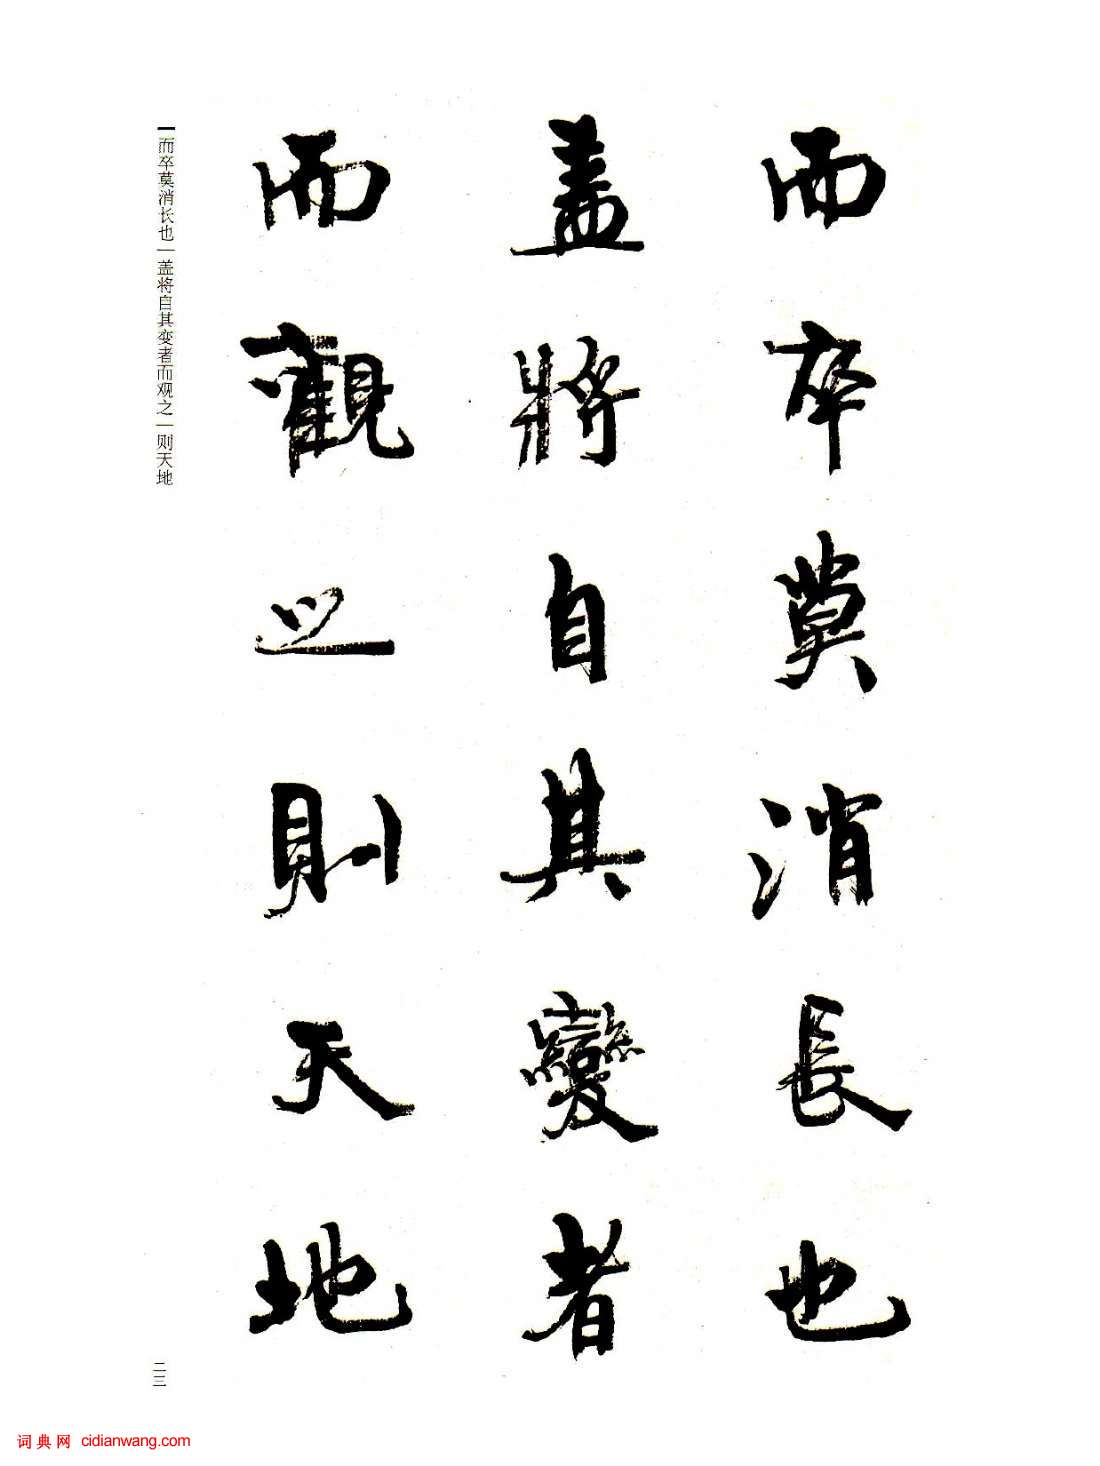 而卒莫消長也
盖將自其變者
而觀之則天地
而卒莫消长也｜盖将自其变者而观之｜则天地
二三
词典网 cidianwang.com